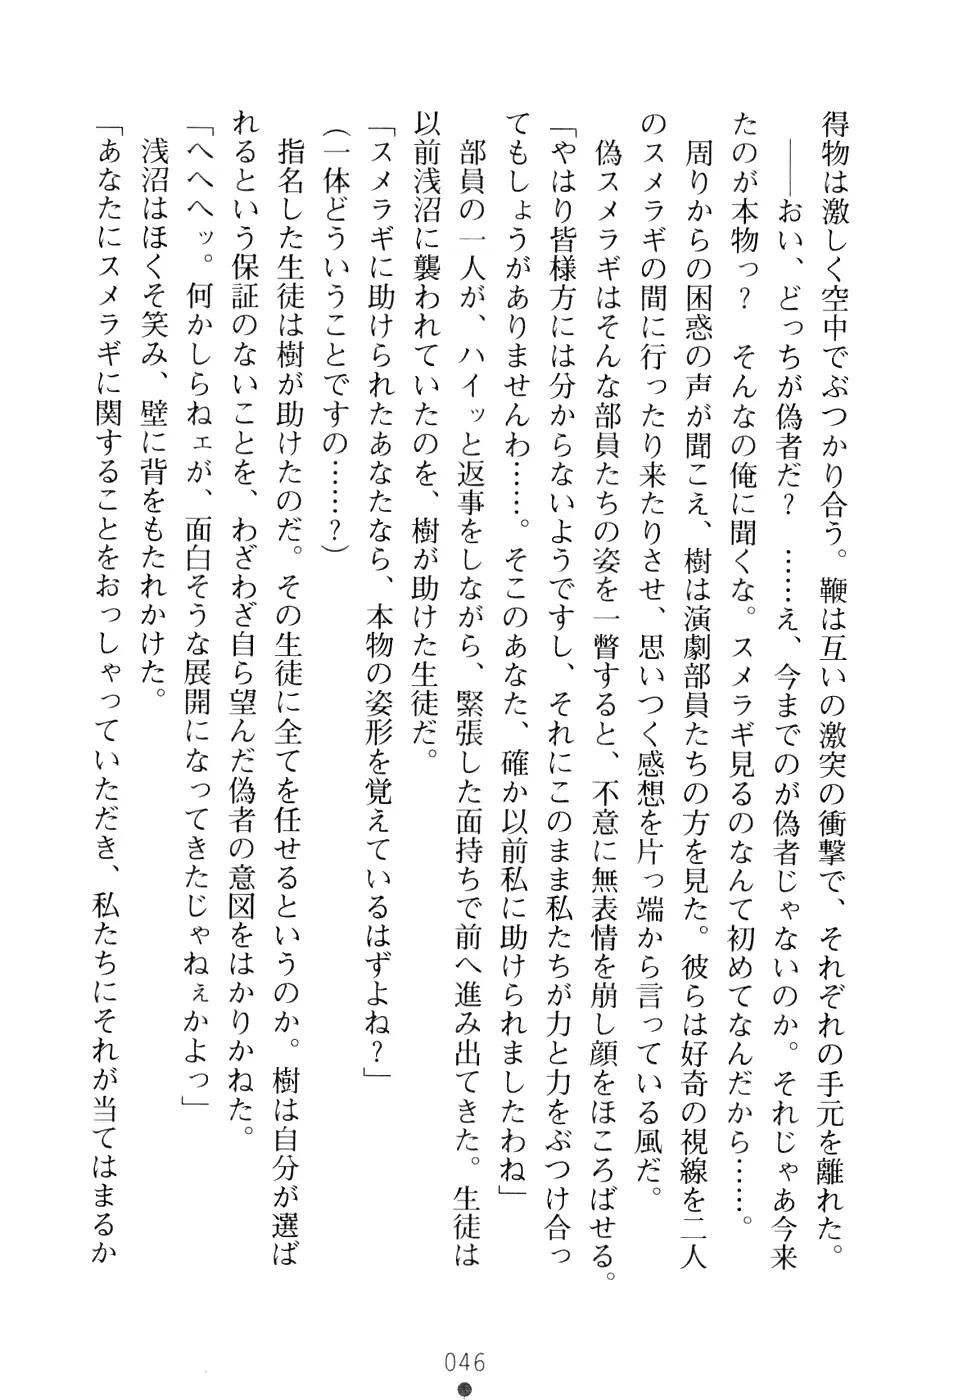 得物は激しく空中でぶつかり合う。鞭は互いの激突の衝撃で、それぞれの手元を離れた。
――おい、どっちが偽者だ？　……え、今までのが偽者じゃないのか。それじゃあ今来
たのが本物っ？　そんなの俺に聞くな。スメラギ見るのなんて初めてなんだから……。
周りからの困惑の声が聞こえ、樹は演劇部員たちの方を見た。彼らは好奇の視線を二人
のスメラギの間に行ったり来たりさせ、思いつく感想を片っ端から言っている風だ。
偽スメラギはそんな部員たちの姿を一瞥すると、不意に無表情を崩し顔をほころばせる。
「やはり皆様方には分からないようですし、それにこのまま私たちが力と力をぶつけ合っ
てもしょうがありませんわ……。そこのあなた、確か以前私に助けられましたわね」
部員の一人が、ハイッと返事をしながら、緊張した面持ちで前へ進み出てきた。生徒は
以前浅沼に襲われていたのを、樹が助けた生徒だ。
「スメラギに助けられたあなたなら、本物の姿形を覚えているはずよね？」
（一体どういうことですの……？）
指名した生徒は樹が助けたのだ。その生徒に全てを任せるというのか。樹は自分が選ば
れるという保証のないことを、わざわざ自ら望んだ偽者の意図をはかりかねた。
「へへへッ。何かしらねェが、面白そうな展開になってきたじゃねぇかよっ」
浅沼はほくそ笑み、壁に背をもたれかけた。
「あなたにスメラギに関することをおっしゃっていただき、私たちにそれが当てはまるか
046